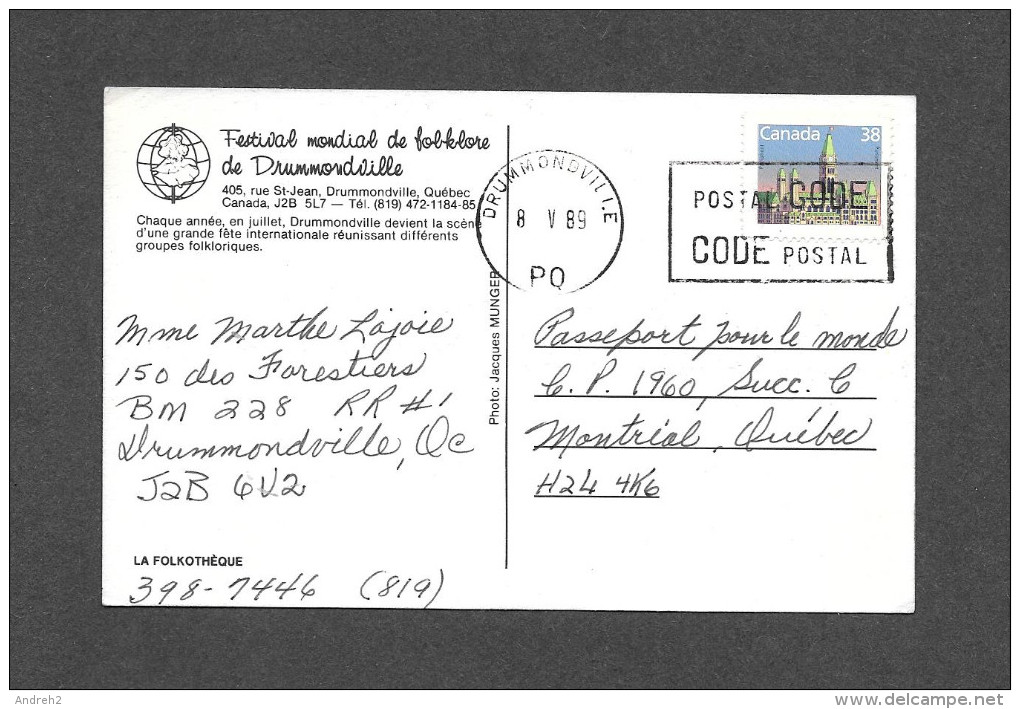 Festival mondial de folklore
de Drummondville
405, rue St-Jean, Drummondville, Québec
Canada, J2B 5L7 — Tél. (819) 472-1184-85
Chaque année, en juillet, Drummondville devient la scène
d'une grande fête internationale réunissant différents
groupes folkloriques.
DRUMMONDVILLE
8 V 89
PQ
Canada 38
POSTAL CODE
CODE POSTAL
Mme Marthe Lajoie
150 des Forestiers
BM 228 RR #1
Drummondville, Qc
J2B 6V2
LA FOLKOTHÈQUE
398-7446 (819)
Photo: Jacques MUNGER
Passeport pour le monde
C. P. 1960, Succ. C
Montréal, Québec
H2L 4K6
Andreh2
www.delcampe.net